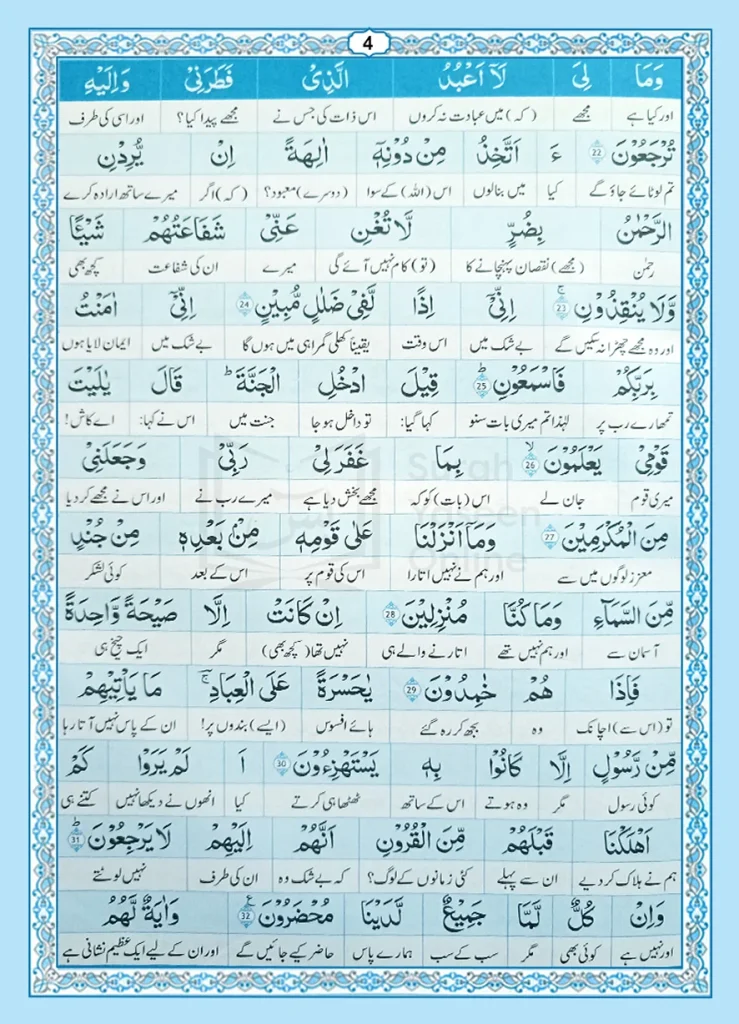 4
وَمَا لِیَ لَاۤ اَعۡبُدُ الَّذِیۡ فَطَرَنِیۡ وَاِلَیۡهِ
اور کیا ہے مجھے (کہ) میں عبادت نہ کروں اس ذات کی جس نے مجھے پیدا کیا؟ اور اسی کی طرف
تُرۡجَعُوۡنَ 22 ءَ اَتَّخِذُ مِنۡ دُوۡنِهٖۤ اٰلِهَةً اِنۡ یُّرِدۡنِ
تم لوٹائے جاؤ گے کیا میں بنالوں اس (اللہ) کے سوا (دوسرے) معبود؟ (کہ) اگر میرے ساتھ ارادہ کرے
الرَّحۡمٰنُ بِضُرٍّ لَّا تُغۡنِ عَنِّیۡ شَفَاعَتُهُمۡ شَیۡـًٔا
رحمٰن (مجھے) نقصان پہنچانے کا (تو) کام نہیں آئے گی میرے ان کی شفاعت کچھ بھی
وَّلَا یُنۡقِذُوۡنِ ۚ 23 اِنِّیۡۤ اِذًا لَّفِیۡ ضَلٰلٍ مُّبِیۡنٍ 24 اِنِّیۡۤ اٰمَنۡتُ
اور وہ مجھے چھڑا نہ سکیں گے بے شک میں اس وقت یقیناً کھلی گمراہی میں ہوں گا بے شک میں ایمان لایا ہوں
بِرَبِّكُمۡ فَاسۡمَعُوۡنِ ؕ 25 قِیۡلَ ادۡخُلِ الۡجَنَّةَ ؕ قَالَ یٰلَیۡتَ
تمہارے رب پر لہٰذا تم میری بات سنو کہا گیا: تو داخل ہو جا جنت میں اس نے کہا: اے کاش!
قَوۡمِیۡ یَعۡلَمُوۡنَ ۙ 26 بِمَا غَفَرَ لِیۡ رَبِّیۡ وَجَعَلَنِیۡ
میری قوم جان لے اس (بات) کو کہ مجھے بخش دیا ہے میرے رب نے اور اس نے مجھے کر دیا
مِنَ الۡمُكۡرَمِیۡنَ 27 وَمَاۤ اَنۡزَلۡنَا عَلٰی قَوۡمِهٖ مِنۡۢ بَعۡدِهٖ مِنۡ جُنۡدٍ
معزز لوگوں میں سے اور ہم نے نہیں اتارا اس کی قوم پر اس کے بعد کوئی لشکر
مِّنَ السَّمَآءِ وَمَا كُنَّا مُنۡزِلِیۡنَ 28 اِنۡ كَانَتۡ اِلَّا صَیۡحَةً وَّاحِدَةً
آسمان سے اور ہم نہیں تھے اتارنے والے ہی نہیں تھا (کچھ بھی) مگر ایک چیخ ہی
فَاِذَا هُمۡ خٰمِدُوۡنَ 29 یٰحَسۡرَةً عَلَی الۡعِبَادِ ۚ مَا یَاۡتِیۡهِمۡ
تو (اس سے) اچانک وہ بجھ کر رہ گئے ہائے افسوس (ایسے) بندوں پر! ان کے پاس نہیں آتا رہا
مِّنۡ رَّسُوۡلٍ اِلَّا كَانُوۡا بِهٖ یَسۡتَهۡزِءُوۡنَ 30 اَ لَمۡ یَرَوۡا كَمۡ
کوئی رسول مگر وہ ہوتے اس کے ساتھ ٹھٹھا ہی کرتے کیا انھوں نے دیکھا نہیں کتنے ہی
اَهۡلَكۡنَا قَبۡلَهُمۡ مِّنَ الۡقُرُوۡنِ اَنَّهُمۡ اِلَیۡهِمۡ لَا یَرۡجِعُوۡنَ ؕ 31
ہم نے ہلاک کر دیے ان سے پہلے کئی زمانوں کے لوگ؟ کہ بے شک وہ ان کی طرف نہیں لوٹتے
وَاِنۡ كُلٌّ لَّمَّا جَمِیۡعٌ لَّدَیۡنَا مُحۡضَرُوۡنَ ۧ 32 وَاٰیَةٌ لَّهُمُ
اور نہیں ہے کوئی بھی مگر سب کے سب ہمارے پاس حاضر کیے جائیں گے اور ان کے لیے ایک عظیم نشانی ہے